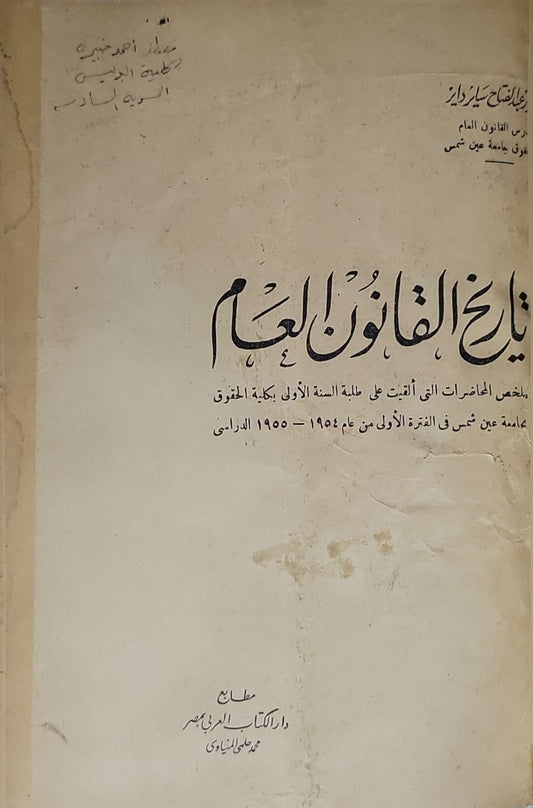 مصطفى أحمد خميس
كلية البوليس
السرية السادسة
عبد الفتاح ساير داير
مدرس القانون العام
حقوق جامعة عين شمس
تاريخ القانون العام
ملخص المحاضرات التى ألقيت على طلبة السنة الأولى بكلية الحقوق
بجامعة عين شمس فى الفترة الأولى من عام ١٩٥٤ – ١٩٥٥ الدراسى
مطابع
دار الكتاب العربى بمصر
محمد حلمى المنياوى